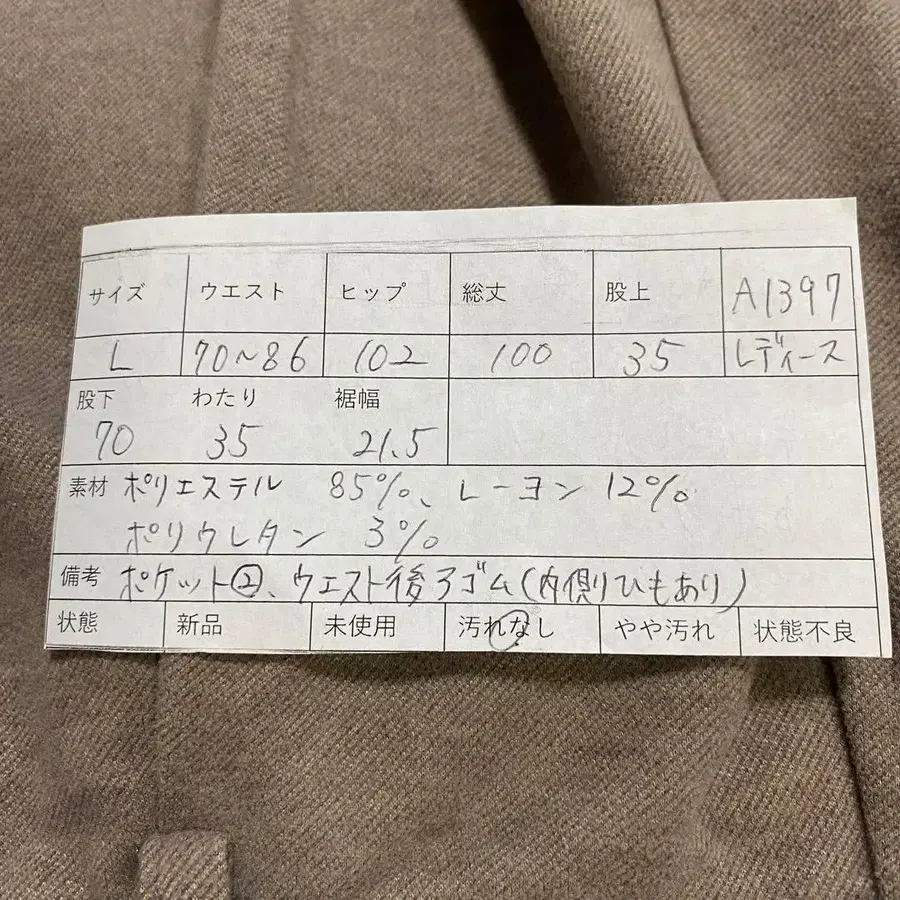 サイズ ウエスト ヒップ 総丈 股上 A1397
L 70~86 102 100 35 レディース
股下 わたり 裾幅
70 35 21.5
素材 ポリエステル 85%、レーヨン 12%
ポリウレタン 3%
備考 ポケット②、ウエスト後ろゴム(内側ひもあり)
状態 新品 未使用 汚れなし やや汚れ 状態不良